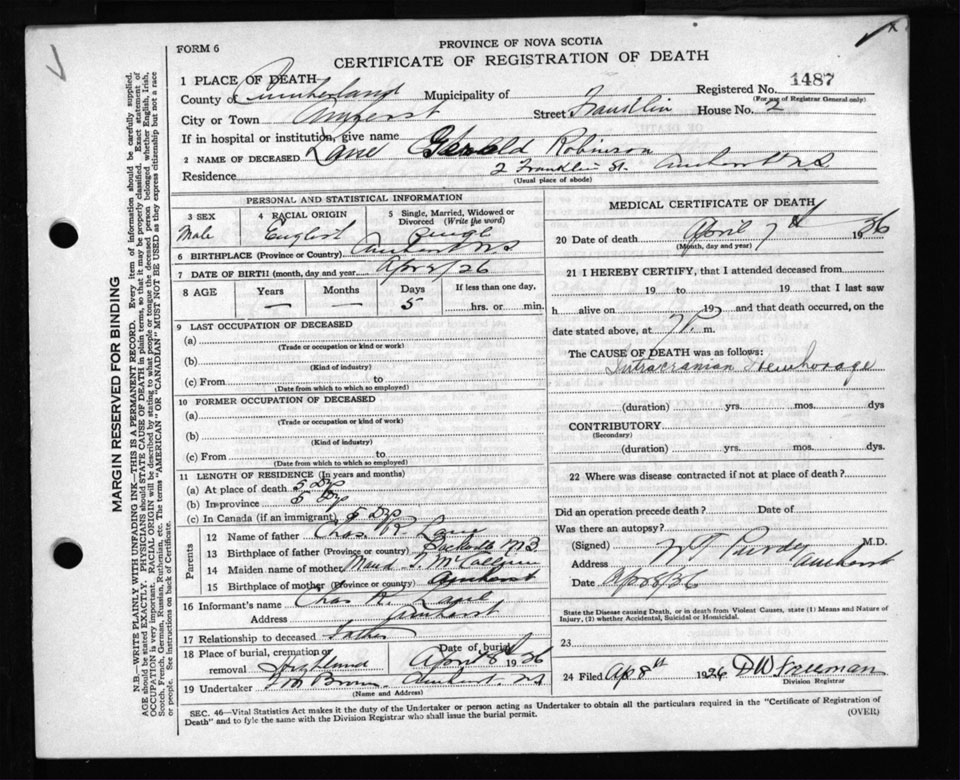 FORM 6
PROVINCE OF NOVA SCOTIA
CERTIFICATE OF REGISTRATION OF DEATH
1 PLACE OF DEATH
Registered No. 1487
(For use of Registrar General only)
County of Cumberland Municipality of
City or Town Amherst Street Franklin House No. 2
If in hospital or institution, give name
2 NAME OF DECEASED Lane Gerald Robinson
Residence 2 Franklin St. Amherst N.S.
(Usual place of abode)
PERSONAL AND STATISTICAL INFORMATION
3 SEX
Male
4 RACIAL ORIGIN
English
5 Single, Married, Widowed or Divorced (Write the word)
Single
6 BIRTHPLACE (Province or Country) Amherst N S
7 DATE OF BIRTH (month, day and year) Apr 2/26
8 AGE Years Months Days If less than one day,
— — 5 hrs. or min.
9 LAST OCCUPATION OF DECEASED
(a)
(Trade or occupation or kind of work)
(b)
(Kind of industry)
(c) From to
(Date from which to which so employed)
10 FORMER OCCUPATION OF DECEASED
(a)
(Trade or occupation or kind of work)
(b)
(Kind of industry)
(c) From to
(Date from which to which so employed)
11 LENGTH OF RESIDENCE (In years and months)
(a) At place of death 5 Dys
(b) In province 5 Dys
(c) In Canada (if an immigrant) 5 Dys
Parents
12 Name of father Chas R. Lane
13 Birthplace of father (Province or country) N B
14 Maiden name of mother Maud S.
15 Birthplace of mother (Province or country) Amherst
16 Informant's name Chas R. Lane
Address Amherst
17 Relationship to deceased Father
18 Place of burial, cremation or removal Highland
Date of burial April 8 1926
19 Undertaker Brown Amherst, NS
(Name and Address)
MEDICAL CERTIFICATE OF DEATH
20 Date of death April 7th 1926
(Month, day and year)
21 I HEREBY CERTIFY, that I attended deceased from
19 to 19 that I last saw
h alive on 19 and that death occurred, on
date stated above, at 7 P. m.
The CAUSE OF DEATH was as follows:
Intracranian Hemhorage
(duration) yrs. mos. dys
CONTRIBUTORY
(Secondary)
(duration) yrs. mos. dys.
22 Where was disease contracted if not at place of death?
Did an operation precede death? Date of
Was there an autopsy?
(Signed) W T Purdy M.D.
Address Amherst
Date Apr 8/26
State the Disease causing Death, or in death from Violent Causes, state (1) Means and Nature of Injury, (2) whether Accidental, Suicidal or Homicidal.
23
24 Filed Ap 8th 1926 D W Freeman
Division Registrar
SEC. 46—Vital Statistics Act makes it the duty of the Undertaker or person acting as Undertaker to obtain all the particulars required in the "Certificate of Registration of
Death" and to fyle the same with the Division Registrar who shall issue the burial permit.
(OVER)
MARGIN RESERVED FOR BINDING
N.B.—WRITE PLAINLY WITH UNFADING INK—THIS IS A PERMANENT RECORD. Every item of information should be carefully supplied.
AGE should be stated EXACTLY. PHYSICIANS should STATE CAUSE OF DEATH in plain terms, so that it may be properly classified. Exact statement of
OCCUPATION is very important. RACIAL ORIGIN will be described by stating to what people or tongue the deceased person belonged whether English, Irish,
Scotch, French, German, Russian, Ruthenian, etc. The terms "AMERICAN" or "CANADIAN" MUST NOT BE USED as they express citizenship but not a race
or people. See instructions on back of Certificate.